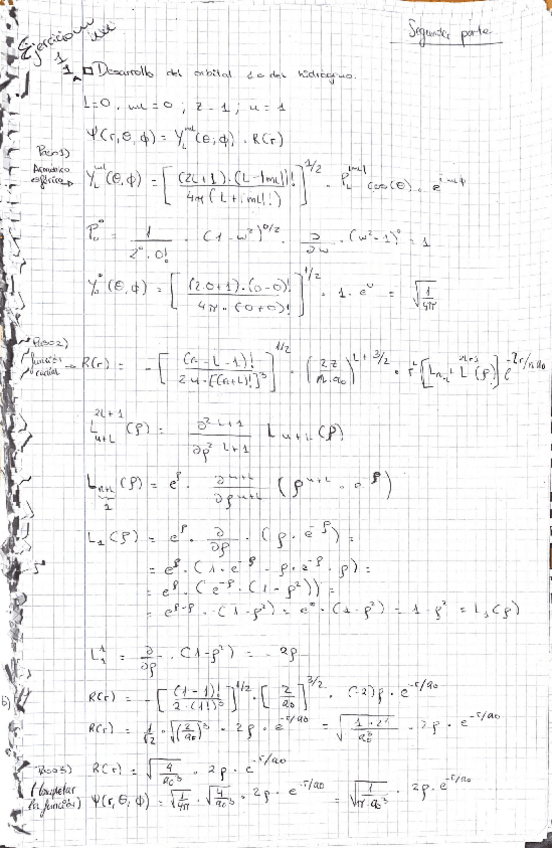 Segunda parte
Ejercicio
1
1. Desarrollo del orbital 1s del hidrógeno.
L=0, ml=0; z-1; n=1
Ψ(r,θ,ϕ) = Y_L^ml(θ,ϕ) · R(r)
Paso 1) Armónico esférico → Y_L^ml(θ,ϕ) = [(2L+1)·(L-|ml|)! / 4π(L+|ml|)!]^1/2 · P_L^|ml| cos(θ) · e^i·m·ϕ
P_0^0 = 1/(2^0·0!) · (1-w²)^0/2 · ∂/∂w · (w²-1)^0 = 1
Y_0^0(θ,ϕ) = [(2·0+1)·(0-0)! / 4π·(0+0)!]^1/2 · 1 · e^0 = √(1/4π)
Paso 2) función radial → R(r) = -[(n-L-1)! / 2n·[(n+L)!]^3]^1/2 · (2z/n·a0)^L+3/2 · r^L [L_n+L^2L+1 (ρ)] e^-Zr/n·a0
L_n+L^2L+1 (ρ) = ∂^2L+1/∂ρ^2L+1 L_n+L(ρ)
L_n+L(ρ) = e^ρ · ∂^n+L/∂ρ^n+L (ρ^n+L · e^-ρ)
L1(ρ) = e^ρ · ∂/∂ρ · (ρ · e^-ρ) =
= e^ρ · (1·e^-ρ - ρ·e^-ρ·ρ) =
= e^ρ · (e^-ρ · (1-ρ²)) =
= e^ρ-ρ · (1-ρ²) = e^0 · (1-ρ²) = 1-ρ² = L1(ρ)
L_1^1 = ∂/∂ρ · (1-ρ²) = -2ρ
R(r) = -[(1-1)! / 2·(1!)^3]^1/2 · [2/a0]^3/2 · (-2)ρ · e^-r/a0
R(r) = 1/√2 · √(2/a0)^3 · 2ρ · e^-r/a0 = √(1·2²/a0^3) · 2ρ · e^-r/a0
Paso 3) R(r) = √(4/a0^3) · 2ρ · e^-r/a0
(Completar la función) Ψ(r,θ,ϕ) = √(1/4π) · √(4/a0^3) · 2ρ · e^-r/a0 = √(1/π·a0^3) · 2ρ · e^-r/a0